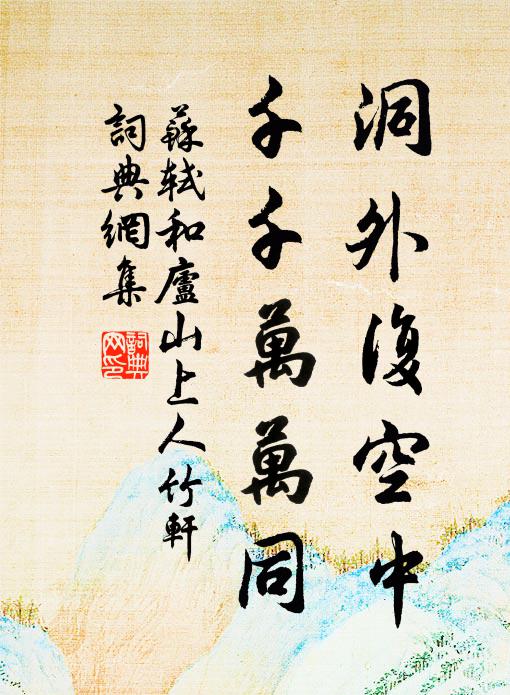 洞外復空中
千千萬萬同
蘇軾和廬山上人竹軒
詞典網集
詞典网印